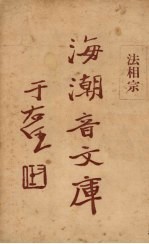 法相宗
海潮音文庫
于右任